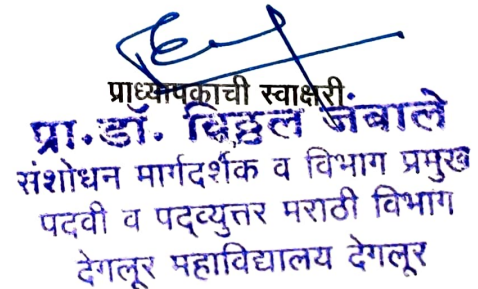 प्राध्यापकाची स्वाक्षरी
प्रा.डॉ. विठ्ठल जंबाले
संशोधन मार्गदर्शक व विभाग प्रमुख
पदवी व पदव्युत्तर मराठी विभाग
देगलूर महाविद्यालय देगलूर